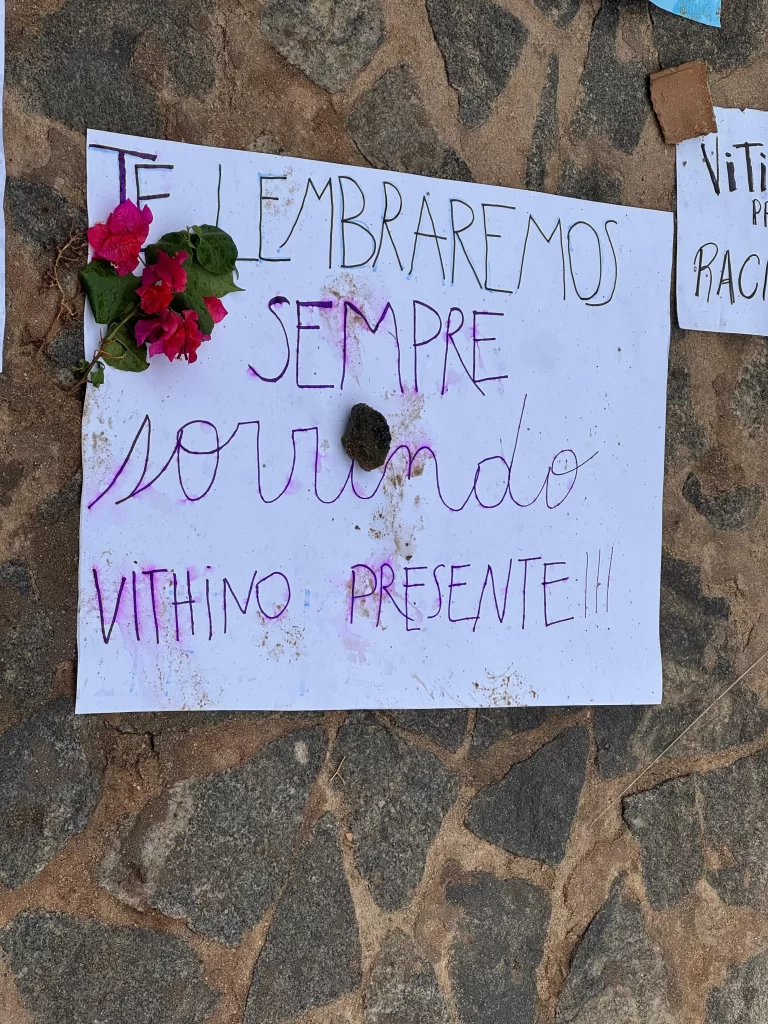 TE LEMBRAREMOS
SEMPRE
sorrindo
VITHINO PRESENTE!!!